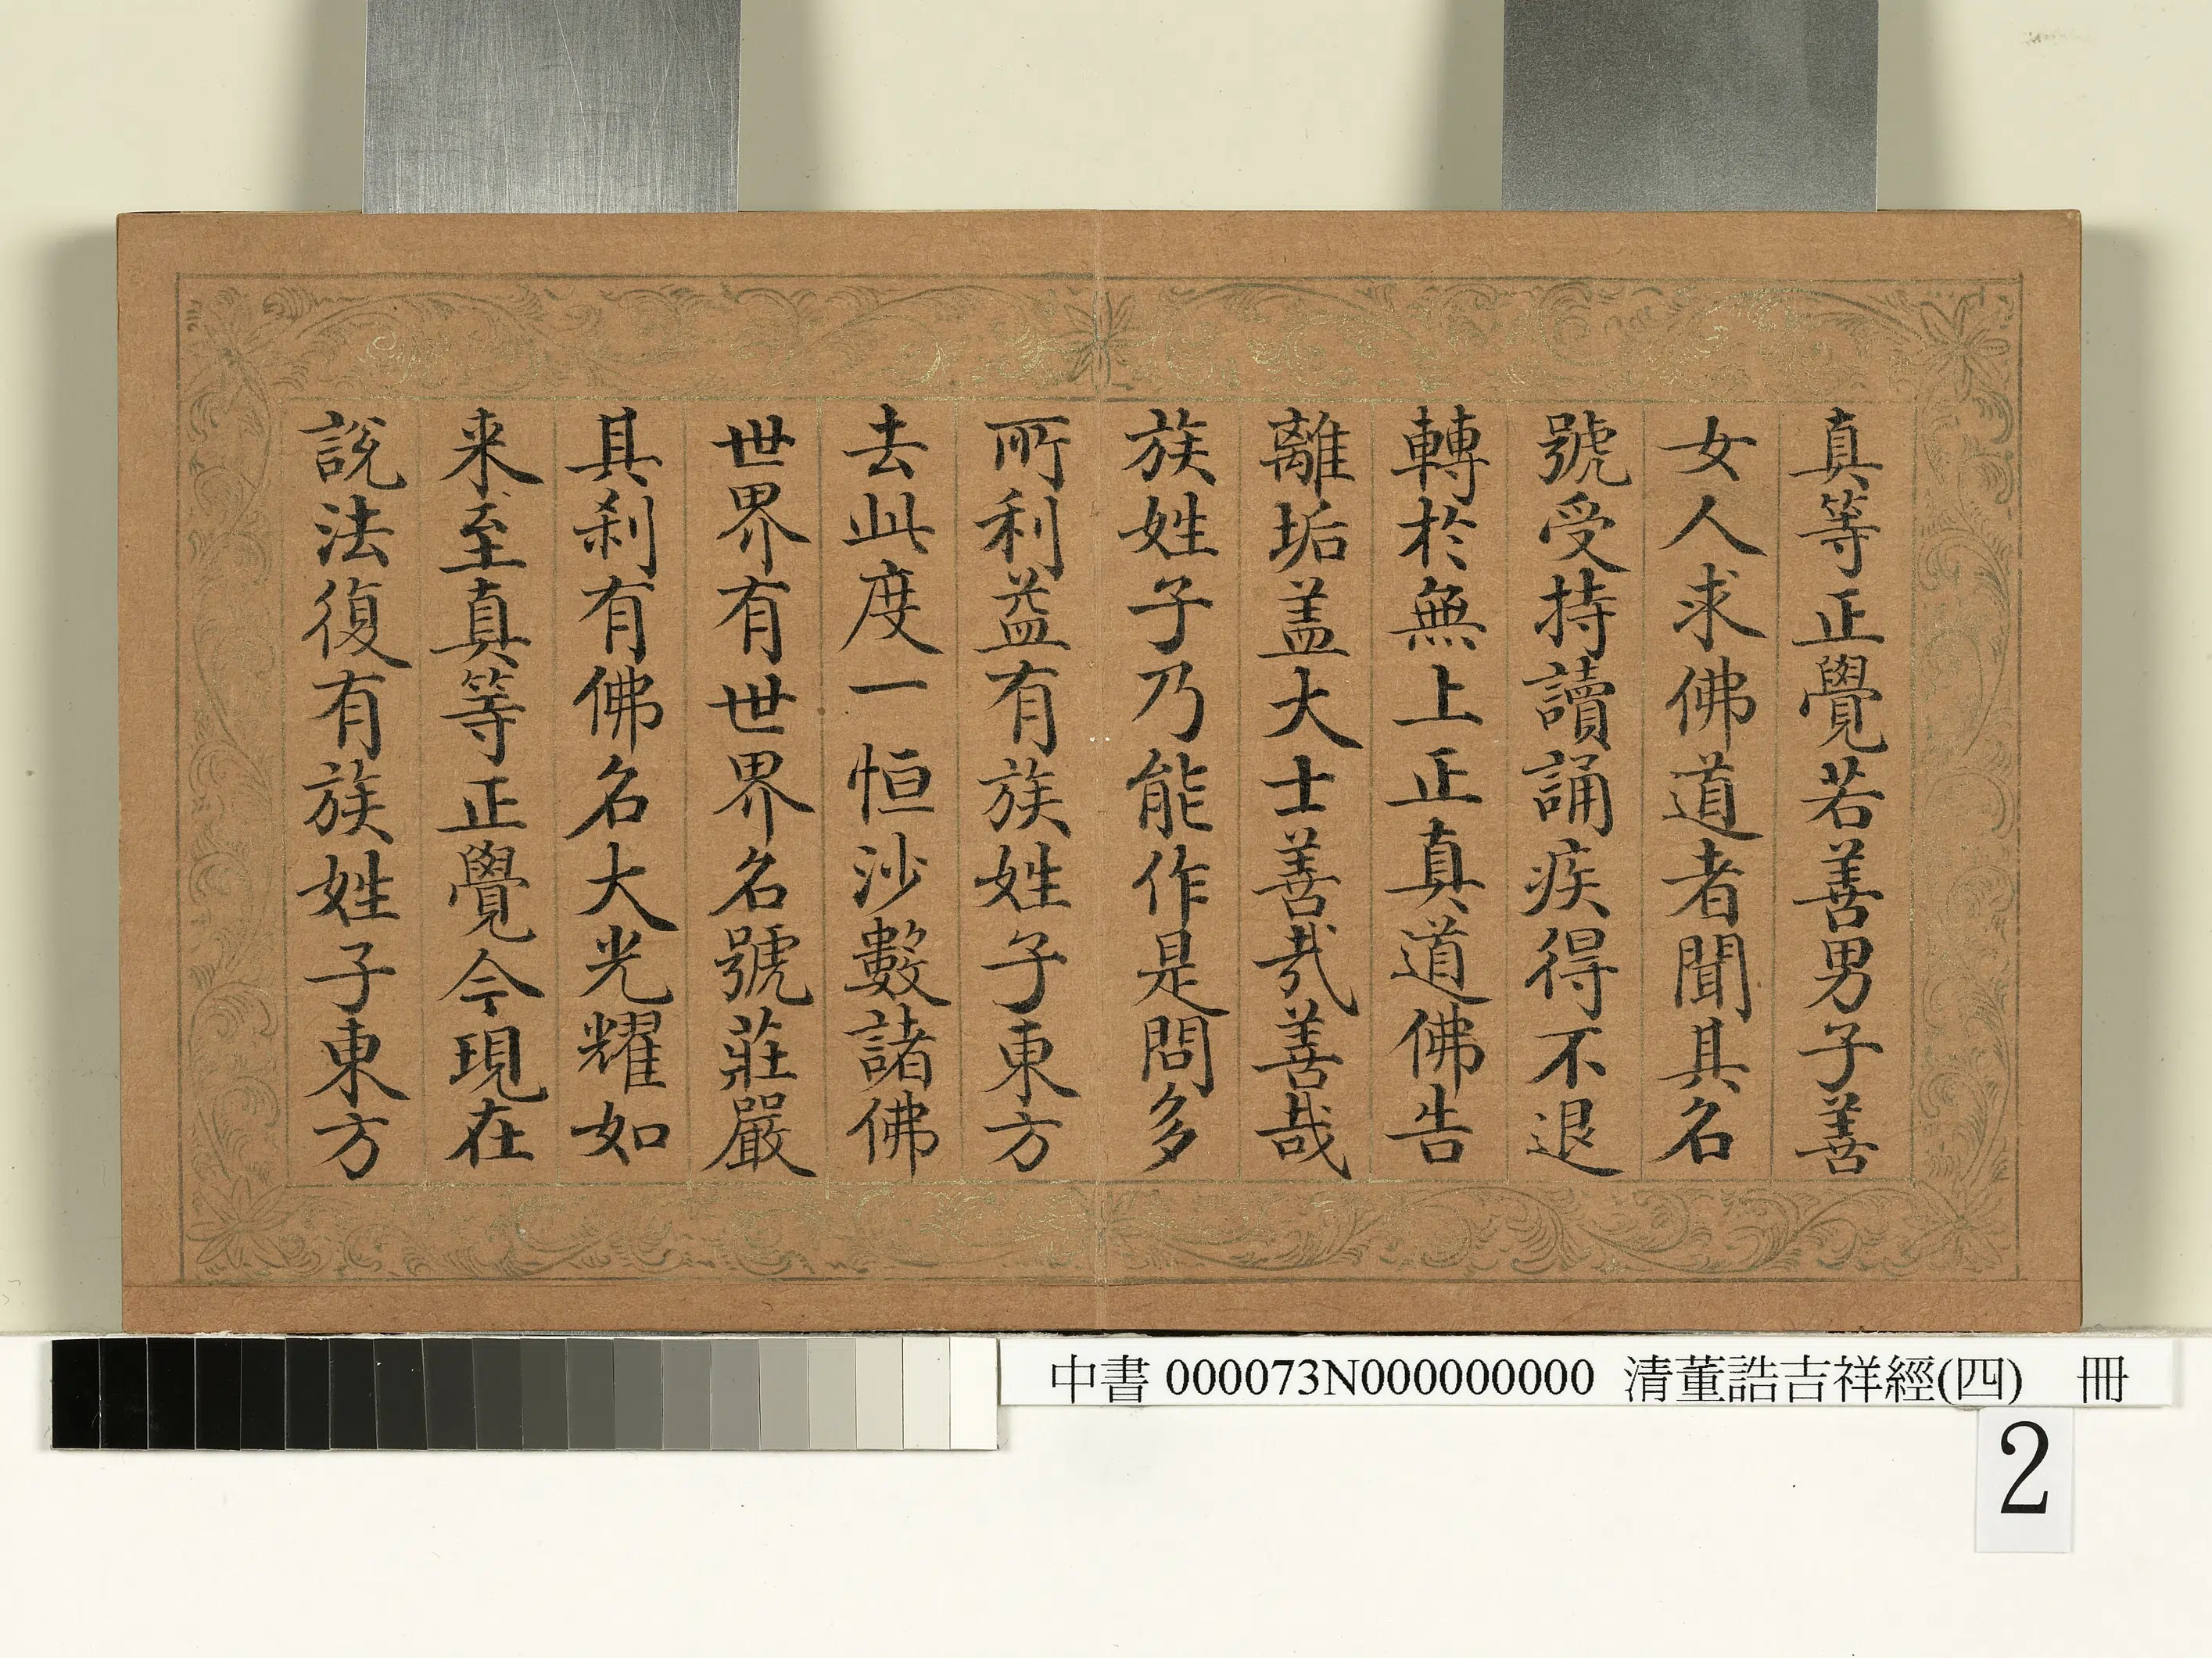 真等正覺若善男子善
女人求佛道者聞其名
號受持讀誦疾得不退
轉於無上正真道佛告
離垢盖大士善哉善哉
族姓子乃能作是問多
所利益有族姓子東方
去此度一恒沙數諸佛
世界有世界名號莊嚴
其刹有佛名大光耀如
来至真等正覺今現在
說法復有族姓子東方
中書000073N000000000 清董誥吉祥經(四) 冊
2